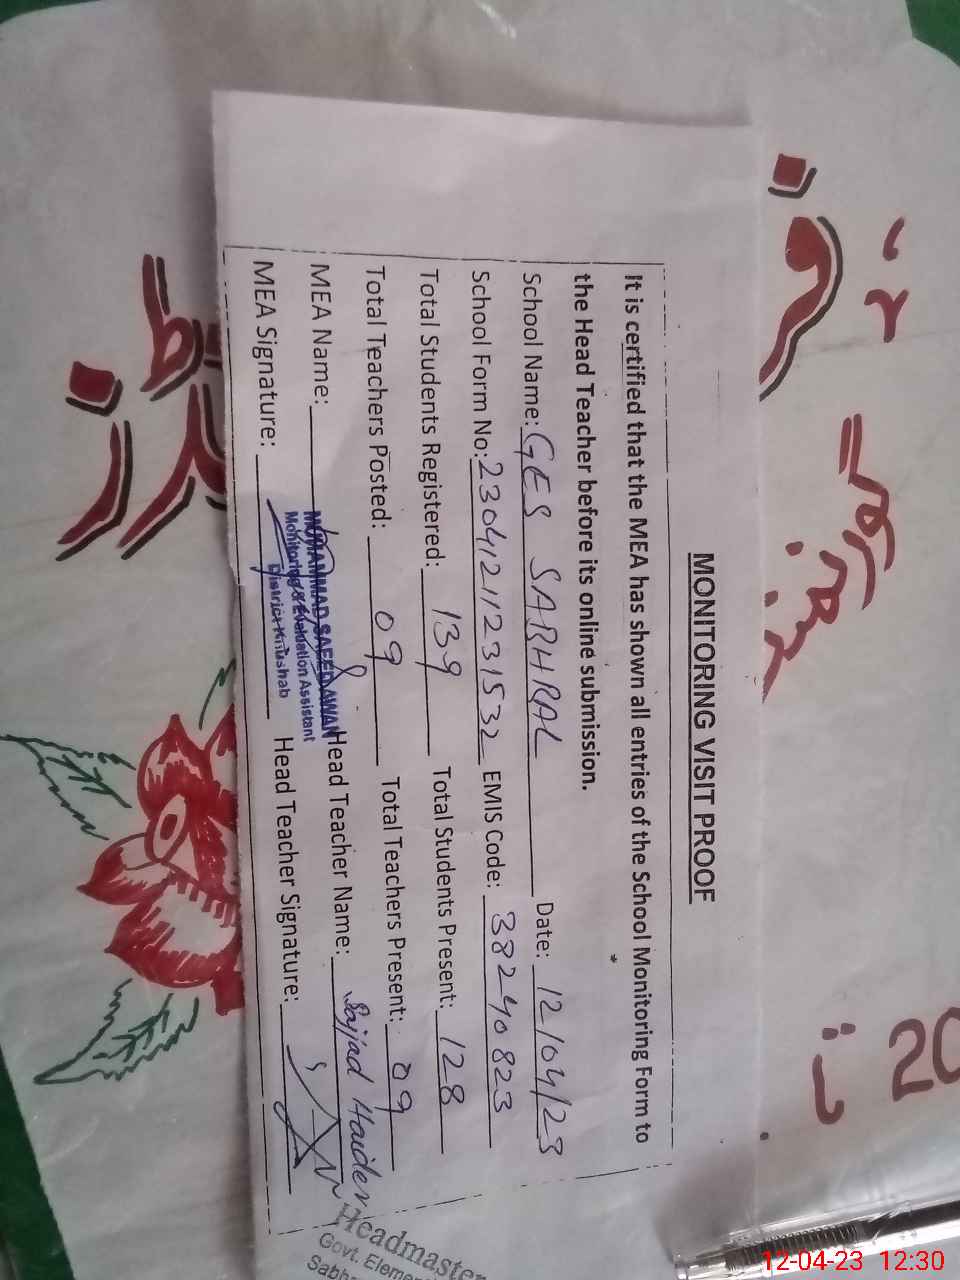 MONITORING VISIT PROOF
It is certified that the MEA has shown all entries of the School Monitoring Form to
the Head Teacher before its online submission.
School Name: GES SARHRAL Date: 12/04/23
School Form No: 23041211231532 EMIS Code: 38240823
Total Students Registered: 139 Total Students Present: 128
Total Teachers Posted: 09 Total Teachers Present: 09
MEA Name: Head Teacher Name: Sajjad Haider
MUHAMMAD SAEED AWAN
Monitoring & Evaluation Assistant
District Khushab
MEA Signature: Head Teacher Signature:
Headmaster
Govt. Elemen
Sabh
20
12-04-23 12:30